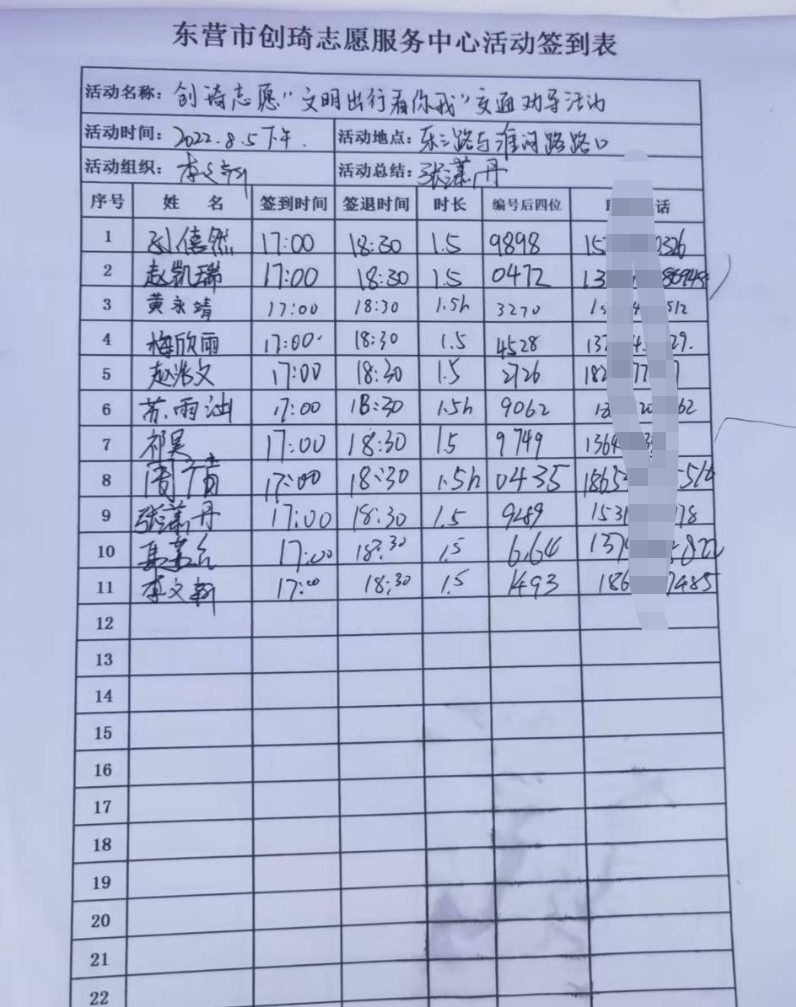 东营市创琦志愿服务中心活动签到表
活动名称：创琦志愿"文明出行看你我"交通劝导活动
活动时间：2022.8.5下午. 活动地点：东三路与淮河路路口
活动组织：李文新 活动总结：张潇丹
序号 姓 名 签到时间 签退时间 时长 编号后四位 话
1 刘信然 17:00 18:30 1.5 9898 15 0326
2 赵凯瑞 17:00 18:30 1.5 0472 13
3 黄永靖 17:00 18:30 1.5h 3270 512
4 梅欣雨 17:00 18:30 1.5 4528 137 29.
5 赵浩文 17:00 18:30 1.5 2726 182 77
6 苏雨 17:00 18:30 1.5h 9062 62
7 祁昊 17:00 18:30 1.5 9749 1364
8 17:00 18:30 1.5h 0435 1865
9 张潇丹 17:00 18:30 1.5 9289 1531 78
10 17:00 18:30 1.5 6164 137 822
11 李文新 17:00 18:30 1.5 1493 186 7485
12
13
14
15
16
17
18
19
20
21
22